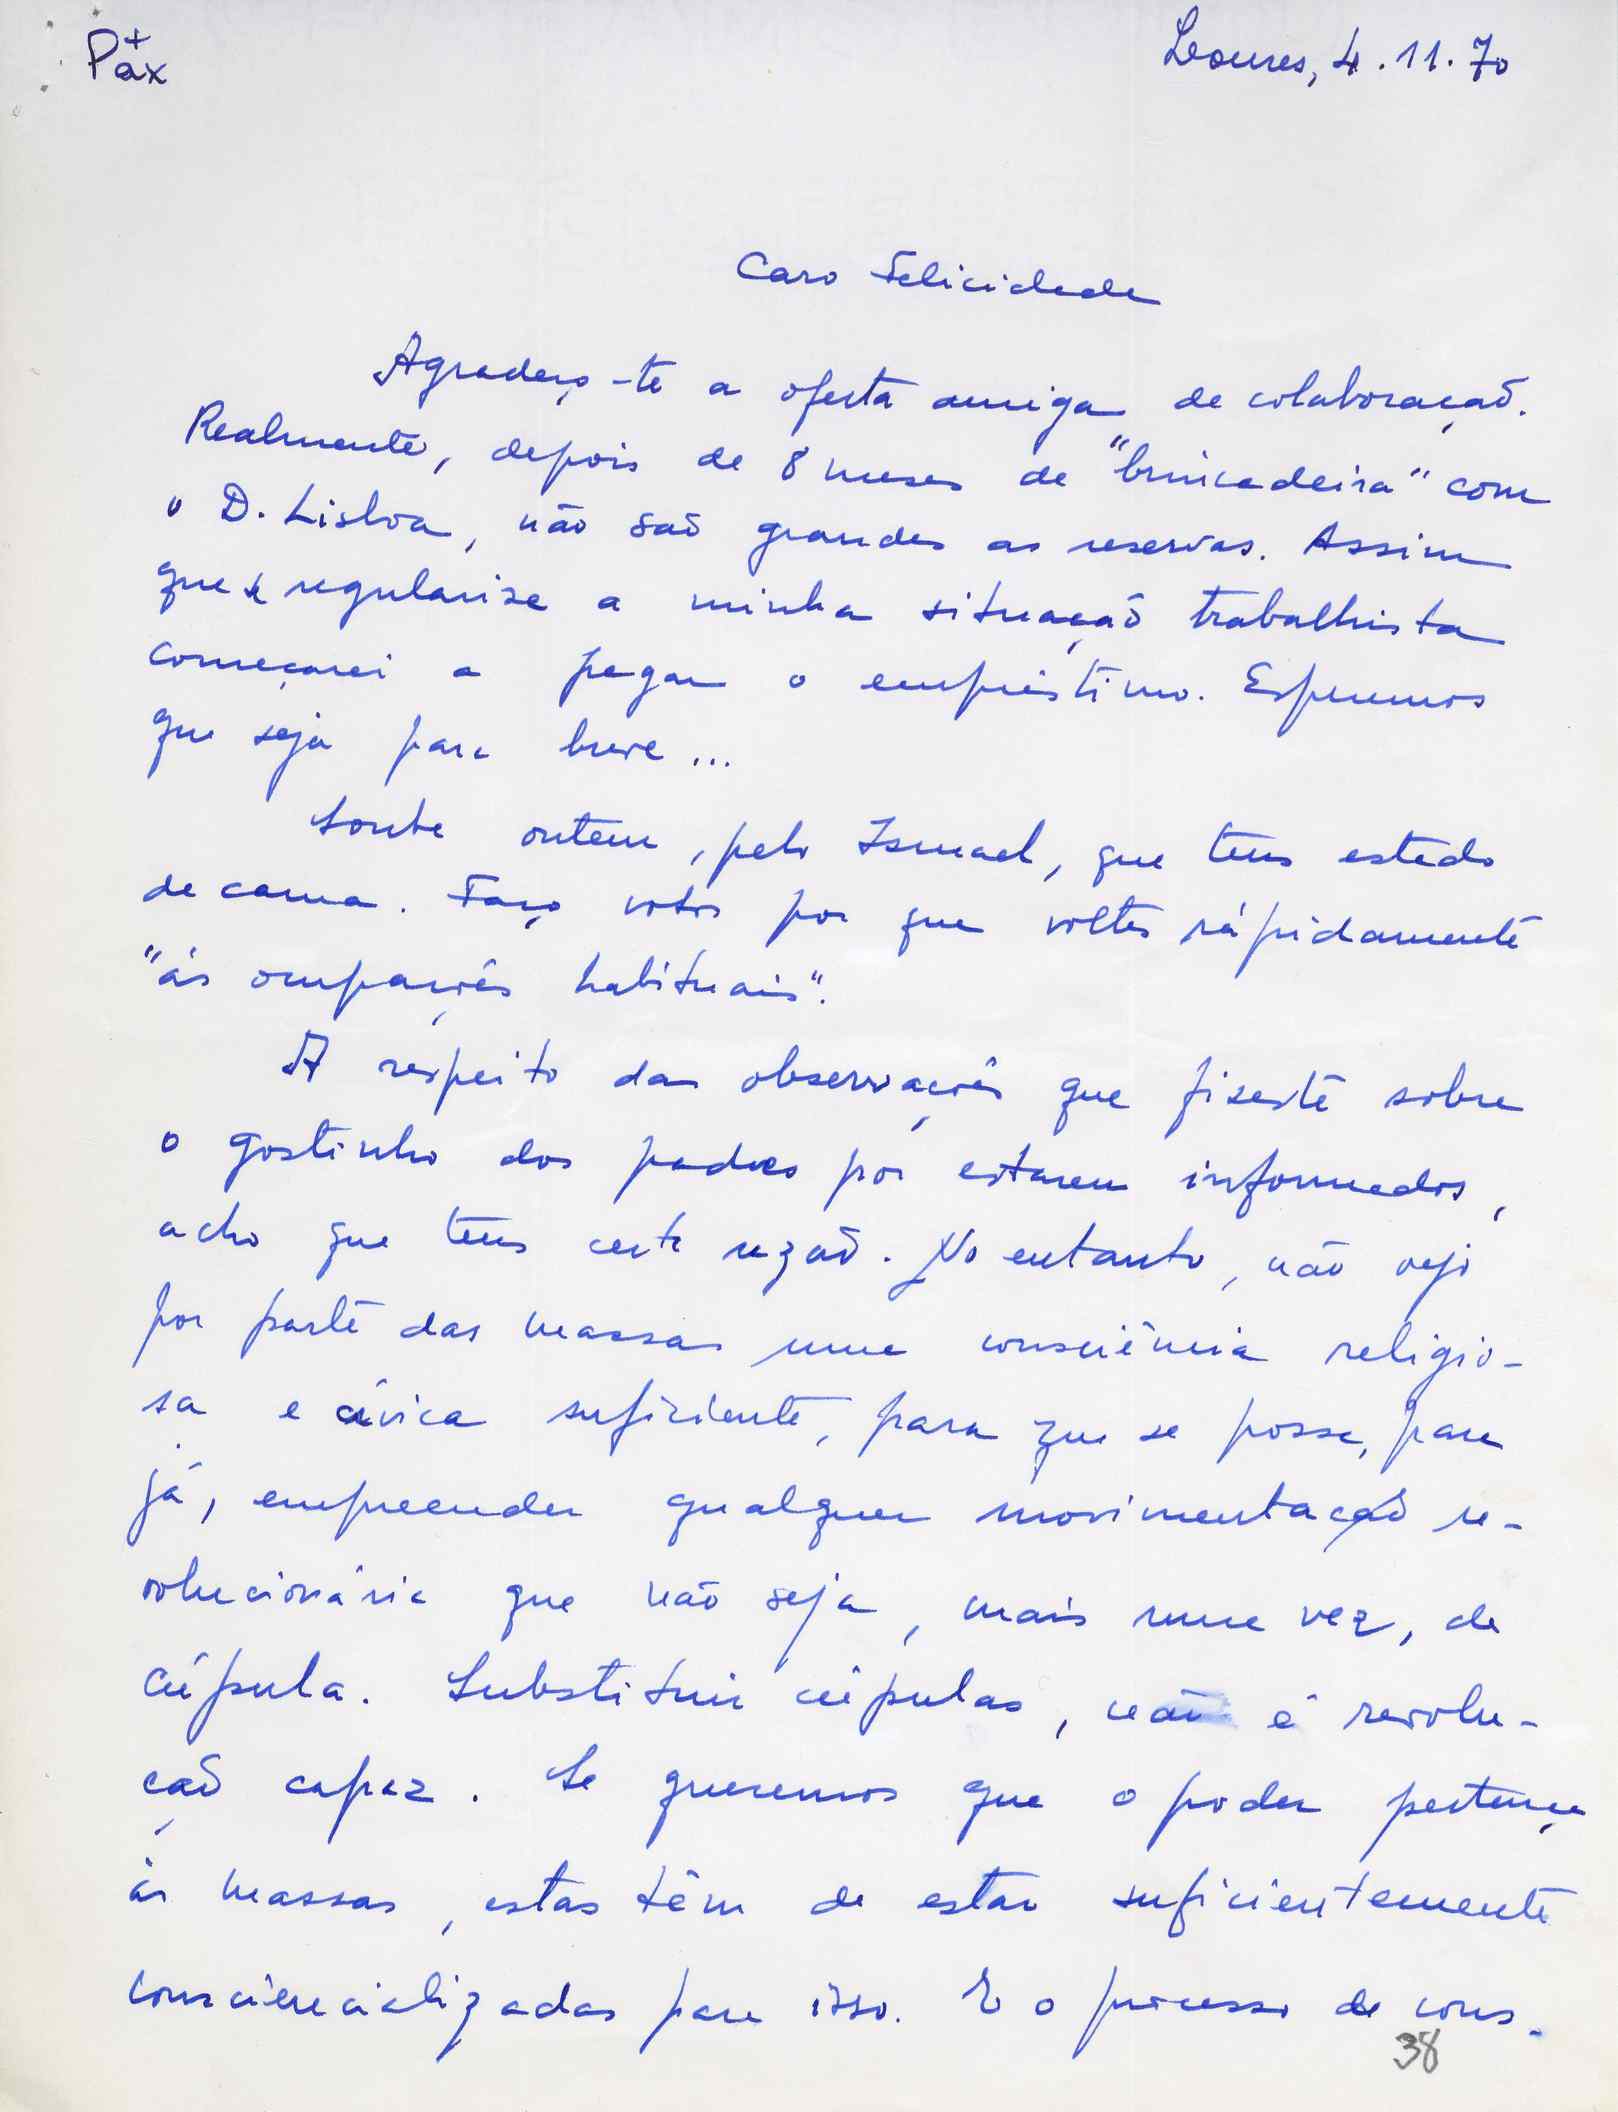 +
Pax
Loures, 4.11.70
Caro Felicidade
Agradeço-te a oferta amiga de colaboração.
Realmente, depois de 8 meses de "brincadeira" com
o D. Lisboa, não são grandes as reservas. Assim
que regularize a minha situação trabalhista
começarei a pagar o empréstimo. Esperemos
que seja para breve...
Soube ontem, pelo Ismael, que tens estado
de cama. Faço votos por que voltes ràpidamente
"às ocupações habituais".
A respeito das observações que fizeste sobre
o gostinho dos padres por estarem informados,
acho que tens certa razão. No entanto, não vejo
por parte das massas uma consciência religio-
sa e cívica suficiente, para que se possa, para
já, empreender qualquer movimentação re-
volucionária que não seja, mais uma vez, de
cúpula. Substituir cúpulas, não é revolu-
ção capaz. Se queremos que o poder pertença
às massas, estas têm de estar suficientemente
consciencializadas para isso. E o processo de cons-
38